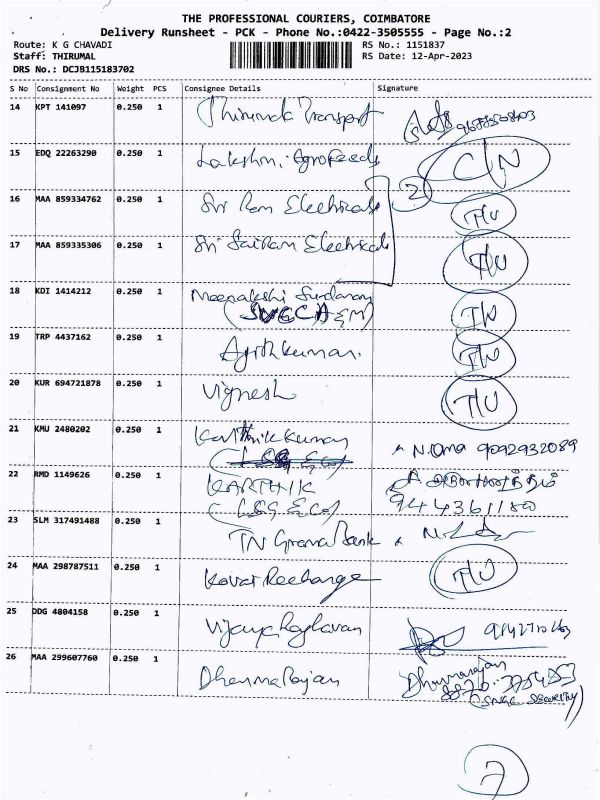 THE PROFESSIONAL COURIERS, COIMBATORE
Delivery Runsheet - PCK - Phone No.:0422-3505555 - Page No.:2
Route: K G CHAVADI
RS No.: 1151837
Staff: THIRUMAL
RS Date: 12-Apr-2023
DRS No.: DCJB115183702
S No Consignment No Weight PCS Consignee Details Signature
14 KPT 141097 0.250 1 Transport
15 EDQ 22263290 0.250 1 Lakshmi Agro Feeds C/N
16 MAA 859334762 0.250 1 Sri Ram Electricals 2 T/U
17 MAA 859335306 0.250 1 Sri Sai Ram Electricals T/U
18 KDI 1414212 0.250 1 Meenakshi Sundaram
19 TRP 4437162 0.250 1 Ajithkumar
20 KUR 694721878 0.250 1 Vignesh T/U
21 KMU 2480202 0.250 1 Karthik Kumar N. Oma 9092932089
22 RMD 1149626 0.250 1 KARTHIK
23 SLM 317491488 0.250 1 TN Grama Bank
24 MAA 298787511 0.250 1 Kovai Recharge T/U
25 DDG 4804158 0.250 1 Vijayaraghavan
26 MAA 299607760 0.250 1 Dhanmarajan Dhanmarajan
7